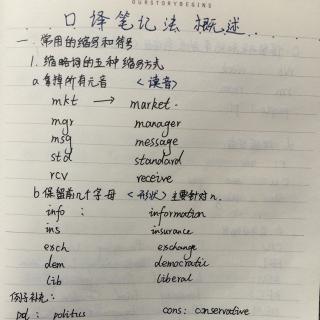 OURSTORYBEGINS
口译笔记法 概述
一 常用的缩写和符号
1. 缩略词的五种缩写方式
a 省掉所有元音 <读音>
mkt → market.
mgr manager
msg message
std standard
rcv receive
b 保留前几个字母 <形状> 主要针对n.
info : information
ins insurance
exch exchange
dem democratic
lib liberal
例子补充:
pol : politics cons: conservative